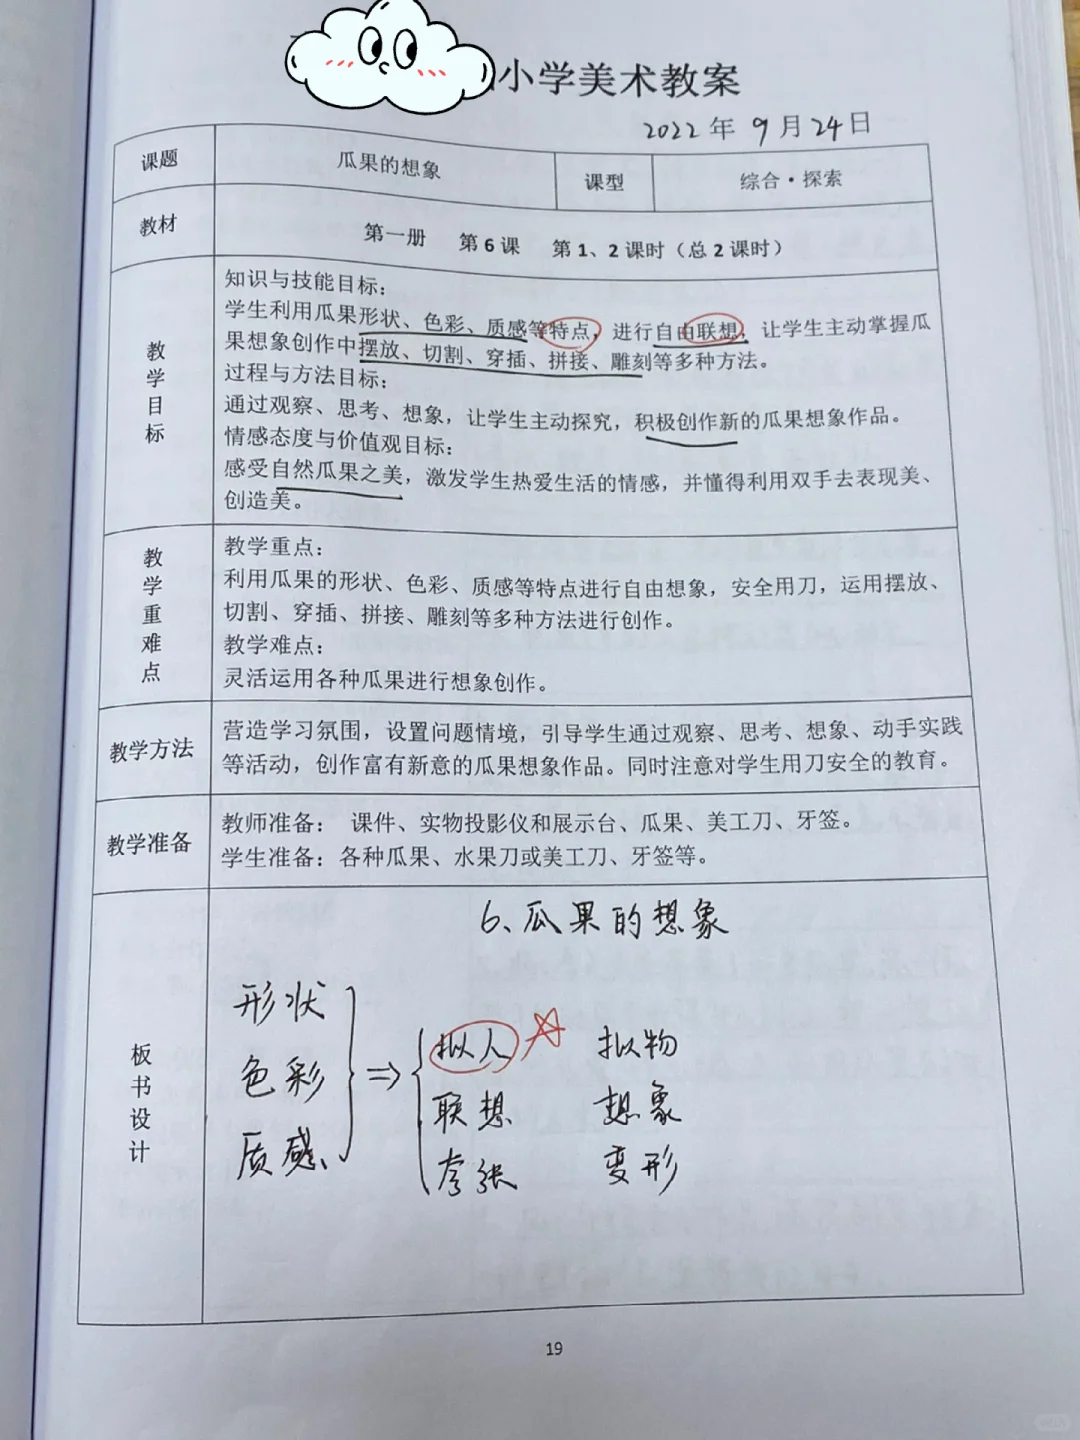 小学美术教案
2022年9月24日
课题 瓜果的想象 课型 综合·探索
教材 第一册 第6课 第1、2课时（总2课时）
教学目标
知识与技能目标：
学生利用瓜果形状、色彩、质感等特点，进行自由联想，让学生主动掌握瓜
果想象创作中摆放、切割、穿插、拼接、雕刻等多种方法。
过程与方法目标：
通过观察、思考、想象，让学生主动探究，积极创作新的瓜果想象作品。
情感态度与价值观目标：
感受自然瓜果之美，激发学生热爱生活的情感，并懂得利用双手去表现美、
创造美。
教学重难点
教学重点：
利用瓜果的形状、色彩、质感等特点进行自由想象，安全用刀，运用摆放、
切割、穿插、拼接、雕刻等多种方法进行创作。
教学难点：
灵活运用各种瓜果进行想象创作。
教学方法
营造学习氛围，设置问题情境，引导学生通过观察、思考、想象、动手实践
等活动，创作富有新意的瓜果想象作品。同时注意对学生用刀安全的教育。
教学准备
教师准备： 课件、实物投影仪和展示台、瓜果、美工刀、牙签。
学生准备：各种瓜果、水果刀或美工刀、牙签等。
板书设计
6、瓜果的想象
形状
色彩
质感、
⇒
拟人 拟物
联想 想象
夸张 变形
19